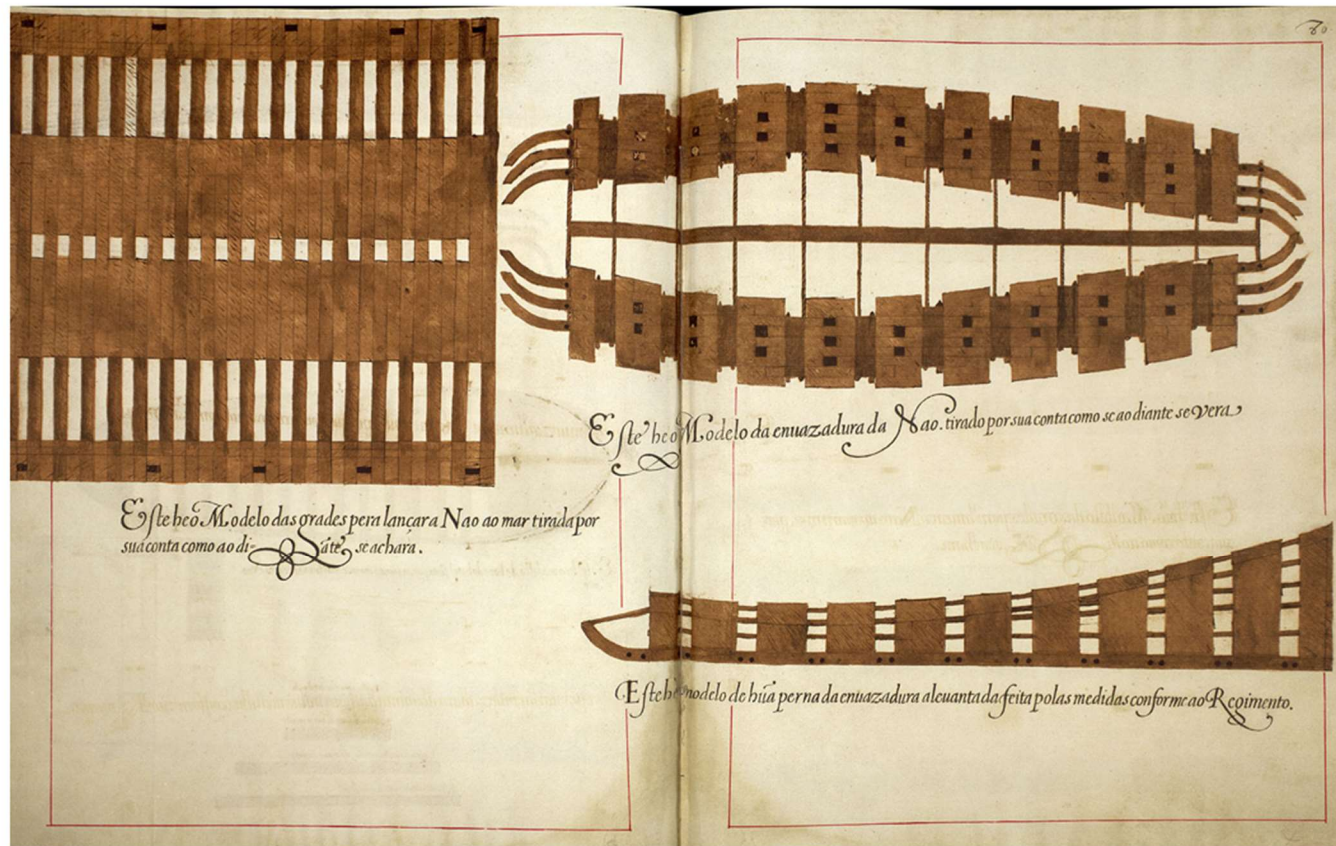 80
Este he o Modelo das grades pera lançar a Nao ao mar tirada por
sua conta como ao diãte se achara.
Este he o Modelo da enuazadura da Nao. tirado por sua conta como se ao diante se vera
Este he modelo de hũa perna da enuazadura aleuantada feita polas medidas conforme ao Regimento.